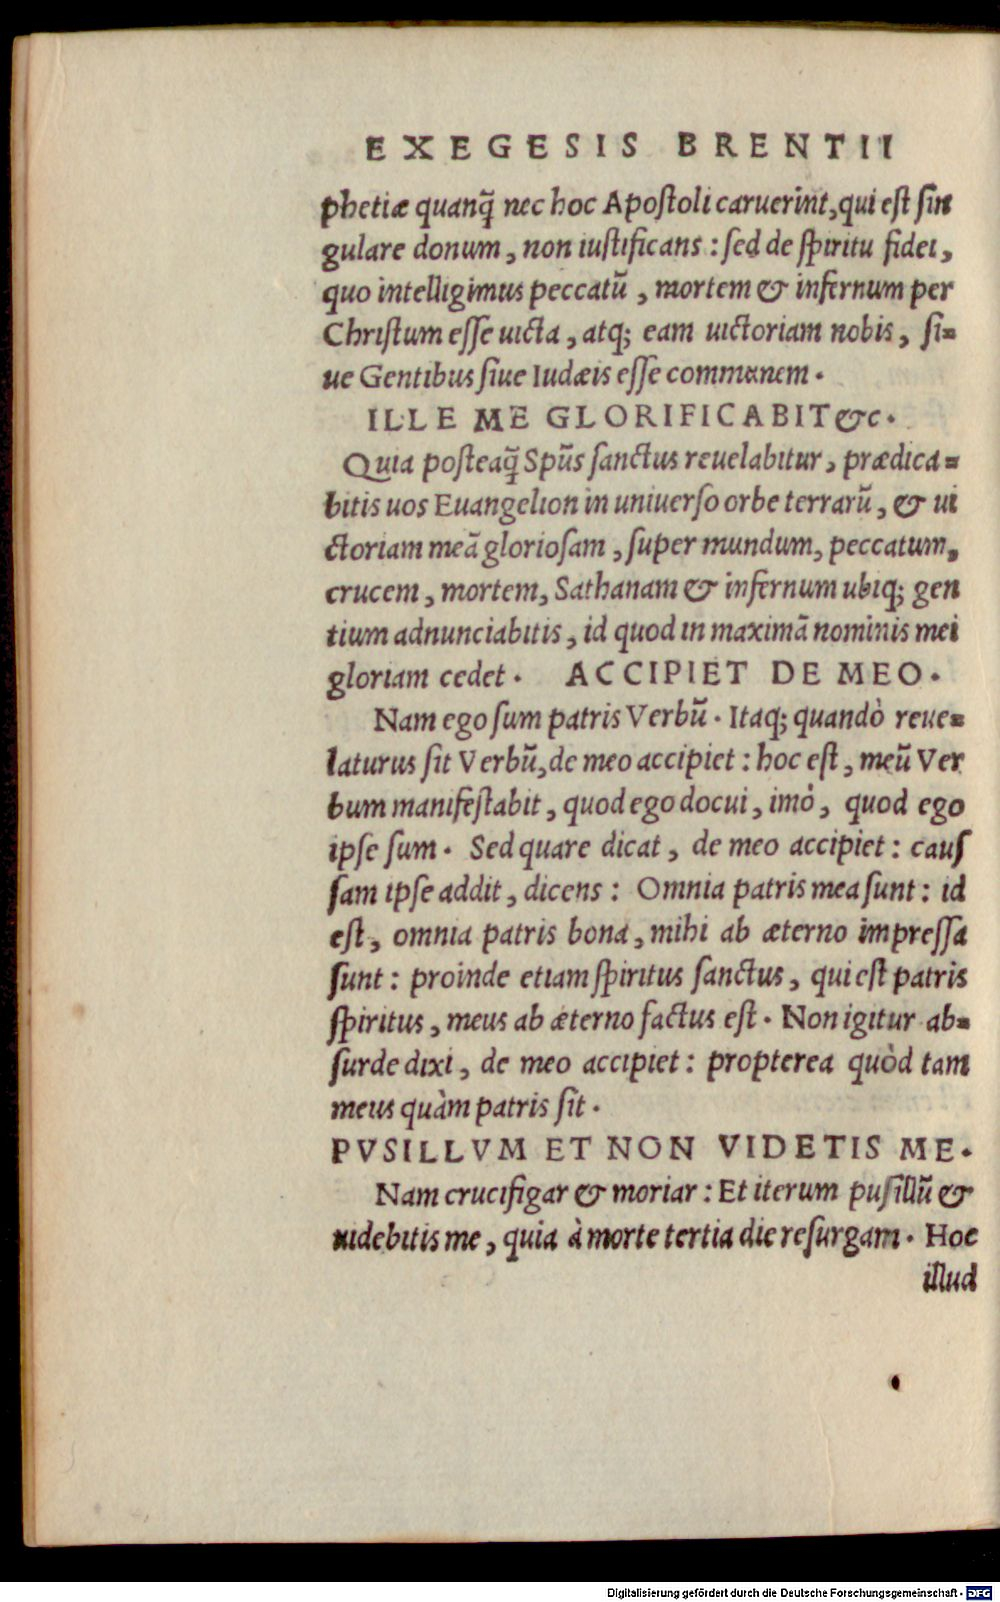 EXEGESIS BRENTII
phetiæ quanq̃ nec hoc Apostoli caruerint, qui est sin
gulare donum, non iustificans: sed de spiritu fidei,
quo intelligimus peccatũ, mortem & infernum per
Christum esse uicta, atq; eam uictoriam nobis, si=
ue Gentibus siue Iudæis esse communem.
ILLE ME GLORIFICABIT &c.
Quia posteaq̃ Spũs sanctus reuelabitur, prædica=
bitis uos Euangelion in uniuerso orbe terrarũ, & ui
ctoriam meã gloriosam, super mundum, peccatum,
crucem, mortem, Sathanam & infernum ubiq; gen
tium adnunciabitis, id quod in maximã nominis mei
gloriam cedet. ACCIPIET DE MEO.
Nam ego sum patris Verbũ. Itaq; quandò reue=
laturus sit Verbũ, de meo accipiet: hoc est, meũ Ver
bum manifestabit, quod ego docui, imò, quod ego
ipse sum. Sed quare dicat, de meo accipiet: caus
sam ipse addit, dicens: Omnia patris mea sunt: id
est, omnia patris bona, mihi ab æterno impressa
sunt: proinde etiam spiritus sanctus, qui est patris
spiritus, meus ab æterno factus est. Non igitur ab=
surde dixi, de meo accipiet: propterea quòd tam
meus quàm patris sit.
PVSILLVM ET NON VIDETIS ME.
Nam crucifigar & moriar: Et iterum pusillũ &
uidebitis me, quia à morte tertia die resurgam. Hoc
illud
Digitalisierung gefördert durch die Deutsche Forschungsgemeinschaft - DFG